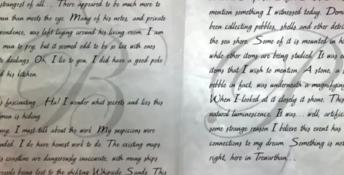 strangest of all... There appeared to be much more to
man than meets the eye. Many of his notes, and private
pondence, was left laying around his living room. I am
man to pry, but it seemed odd to be so lax with ones
dealings. Oh, I lie to you, I did have a good poke
his kitchen.
fascinating... Ha! I wonder what secrets and lies this
man is hiding
I must talk about the work. My suspicions were
I do have honest work to do. The existing maps
coastline are dangerously inaccurate, with many ships
being lost to the shifting Whipside Sands. This
mention something I witnessed today.
been collecting pebbles, shells and other
the sea shore. Some of it is mounted in
while other items are being studied. It was
items that I wish to mention. A stone,
pebble in fact, was underneath a magnifying
When I looked at it closely it shone. This
natural luminescence. It was... well, artific
some strange reason I believe this event has
connections to my dream. Something is not
right, here in Trewarthan...